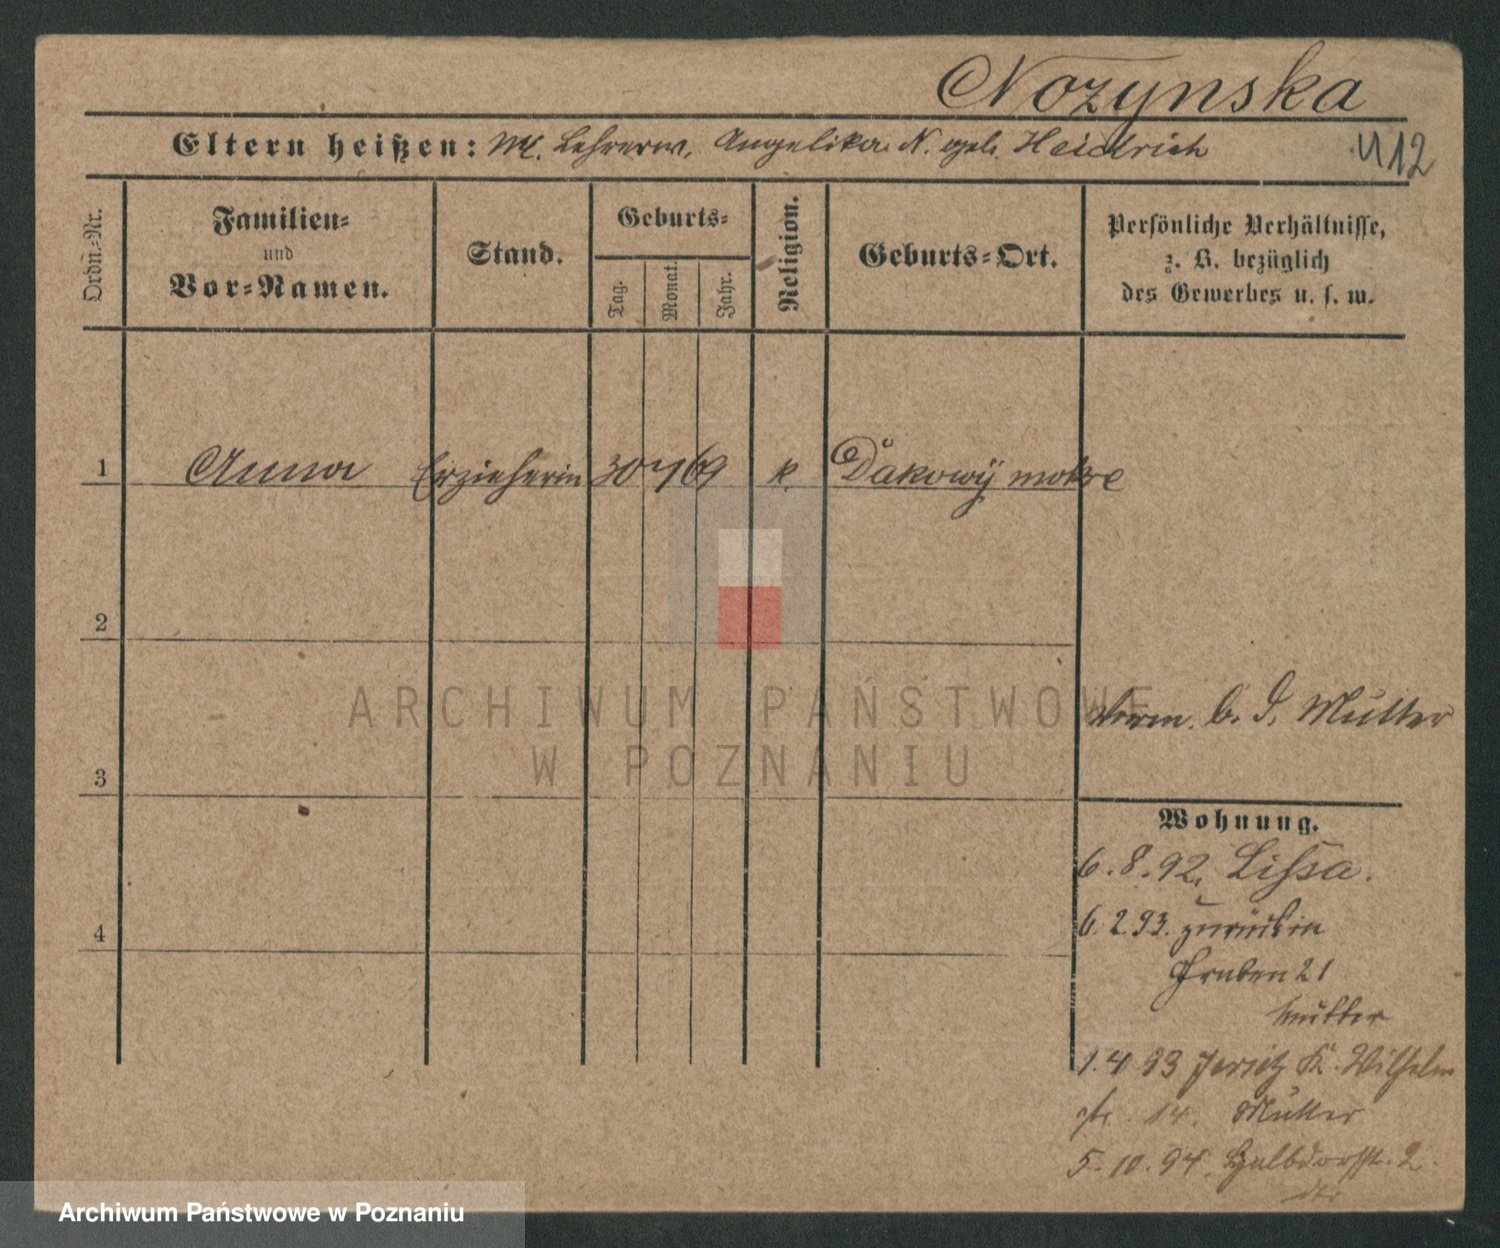 Nozynska
Eltern heißen: M. Lehrerw. Angelika N. geb. Heidrich
Ordn.-Nr.
Familien-
und
Vor-Namen.
Stand.
Geburts-
Tag.
Monat.
Jahr.
Religion.
Geburts-Ort.
Persönliche Verhältnisse,
z. B. bezüglich
des Gewerbes u. s. w.
1 Anna Erzieherin 30 7 69 k. Dakowÿ mokre
2
ARCHIWUM PAŃSTWOWE
W POZNANIU
b. d. Mutter
3
Wohnung.
6.8.92. Lissa.
6.2.93. zurück in
Gruben 21
Mutter
4
1.4.93 Jersitz K. Wilhelm
str. 14. Mutter
5.10.94. Halbdorfstr. 2.
Archiwum Państwowe w Poznaniu